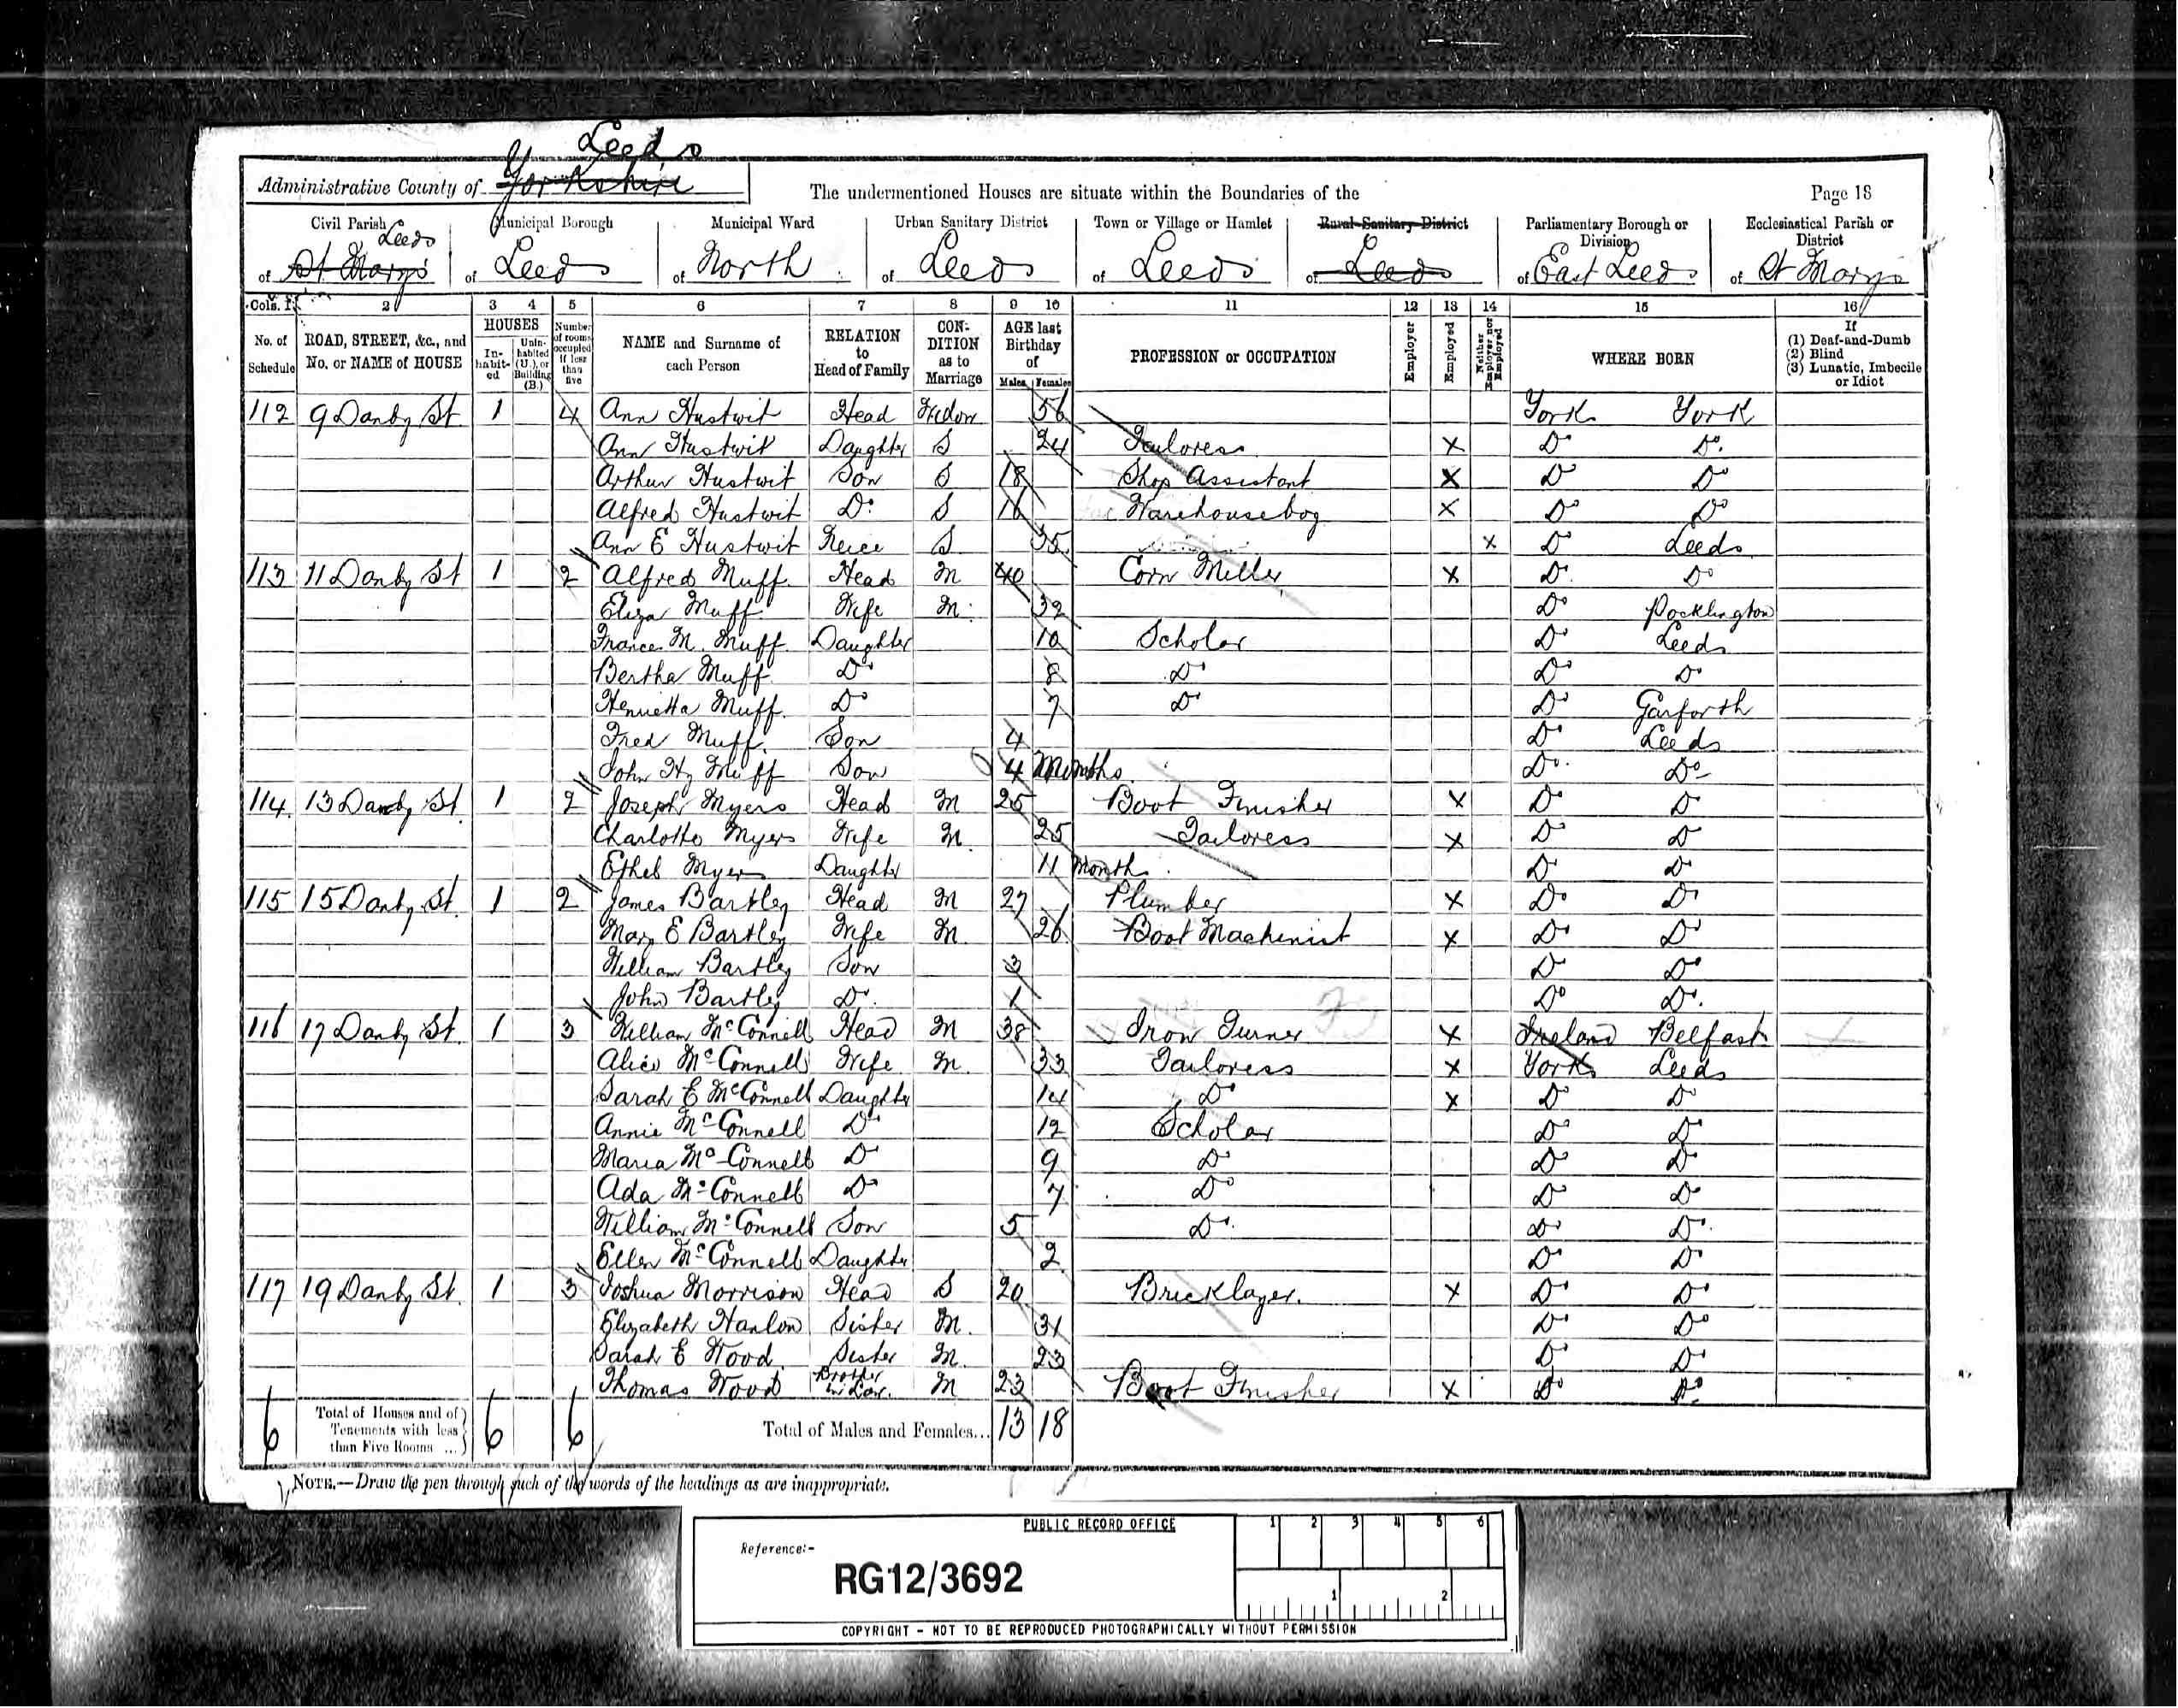 Leeds
Administrative County of Yorkshire The undermentioned Houses are situate within the Boundaries of the Page 18
Civil Parish Municipal Borough Municipal Ward Urban Sanitary District Town or Village or Hamlet Rural Sanitary District Parliamentary Borough or Division Ecclesiastical Parish or District
Leeds
of St Mary's of Leeds of North of Leeds of Leeds of Leeds of East Leeds of St Mary's
Cols. 1 2 3 4 5 6 7 8 9 10 11 12 13 14 15 16
No. of Schedule ROAD, STREET, &c., and No. or NAME of HOUSE HOUSES Inhabited Uninhabited (U.), or Building (B.) Number of rooms occupied if less than five NAME and Surname of each Person RELATION to Head of Family CONDITION as to Marriage AGE last Birthday of Males Females PROFESSION or OCCUPATION Employer Employed Neither Employer nor Employed WHERE BORN If (1) Deaf-and-Dumb (2) Blind (3) Lunatic, Imbecile or Idiot
112 9 Danby St 1 4 Ann Hustwit Head Widow 56 York York
Ann Hustwit Daughter S 24 Tailoress X Do Do
Arthur Hustwit Son S 18 Shop Assistant X Do Do
Alfred Hustwit Do S 16 Warehouseboy X Do Do
Ann E Hustwit Neice S 35 X Do Leeds
113 11 Danby St 1 2 Alfred Muff Head M 40 Corn Miller X Do Do
Eliza Muff Wife M 32 Do Pocklington
Frances M. Muff Daughter 10 Scholar Do Leeds
Bertha Muff Do 8 Do Do Do
Henrietta Muff Do 7 Do Do Garforth
Fred Muff Son 4 Do Leeds
John Hy Muff Son 4 Months Do Do
114 13 Danby St 1 2 Joseph Myers Head M 25 Boot Finisher X Do Do
Charlotte Myers Wife M 25 Tailoress X Do Do
Ethel Myers Daughter 11 Month Do Do
115 15 Danby St 1 2 James Bartley Head M 27 Plumber X Do Do
Mary E Bartley Wife M 26 Boot Machinist X Do Do
William Bartley Son 3 Do Do
John Bartley Do 1 Do Do
116 17 Danby St 1 3 William McConnell Head M 38 Iron Turner X Ireland Belfast
Alice McConnell Wife M 33 Tailoress X York Leeds
Sarah E McConnell Daughter 14 Do X Do Do
Annie McConnell Do 12 Scholar Do Do
Maria McConnell Do 9 Do Do Do
Ada McConnell Do 7 Do Do Do
William McConnell Son 5 Do Do Do
Ellen McConnell Daughter 2 Do Do
117 19 Danby St 1 3 Joshua Morrison Head S 20 Bricklayer X Do Do
Elizabeth Hanlon Sister M 31 Do Do
Sarah E Wood Sister M 23 Do Do
Thomas Wood Brother in Law M 23 Boot Finisher X Do Do
6 Total of Houses and of Tenements with less than Five Rooms ... 6 6 Total of Males and Females... 13 18
NOTE.—Draw the pen through such of the words of the headings as are inappropriate.
PUBLIC RECORD OFFICE
1 2 3 4 5 6
Reference:-
RG12/3692
1 2
COPYRIGHT - NOT TO BE REPRODUCED PHOTOGRAPHICALLY WITHOUT PERMISSION